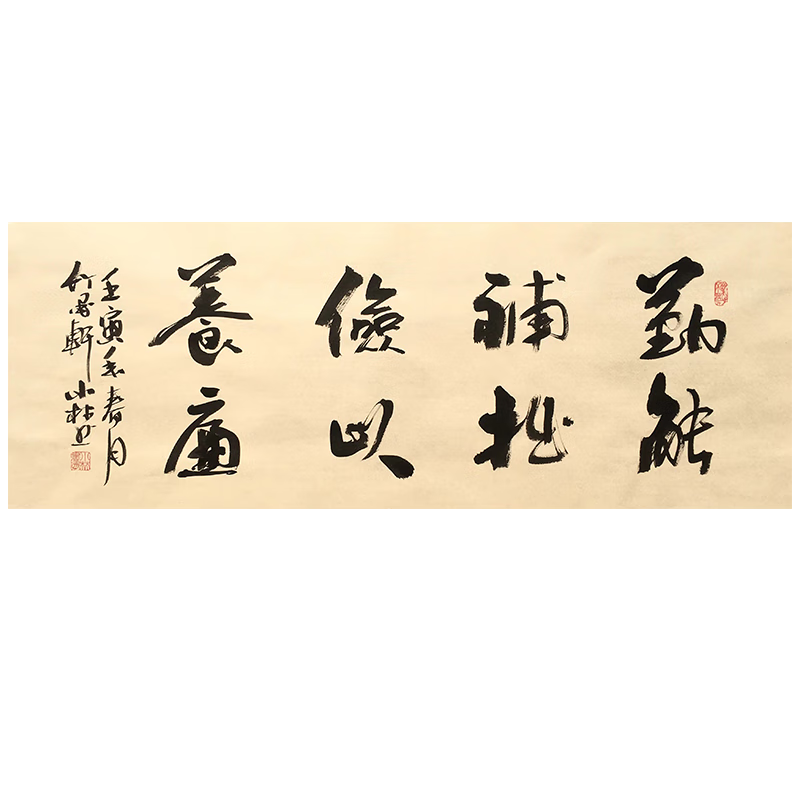 勤能
補拙
儉以
養廉
壬寅年春月
竹墨軒小林書